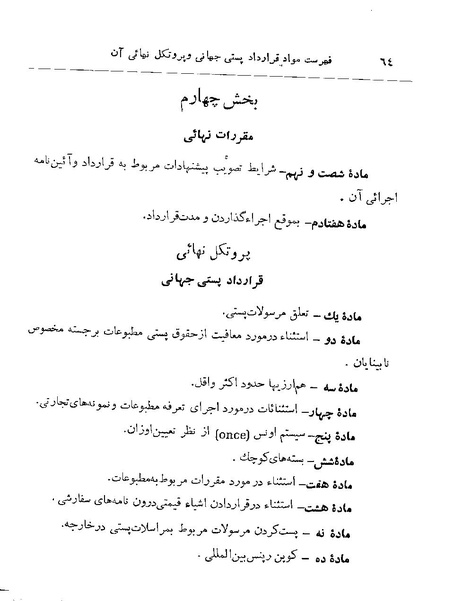 ٦٤ فهرست مواد قرارداد پستی جهانی و پروتکل نهائی آن
بخش چهارم
مقررات نهائی
مادهٔ شصت و نهم- شرایط تصویب پیشنهادات مربوط به قرارداد و آئین‌نامه
اجرائی آن .
مادهٔ هفتادم- بموقع اجراء گذاردن و مدت قرارداد.
پروتکل نهائی
قرارداد پستی جهانی
مادهٔ یك - تعلق مرسولات پستی.
مادهٔ دو - استثناء در مورد معافیت از حقوق پستی مطبوعات برجسته مخصوص
نابینایان .
مادهٔ سه - هم‌ارزیها حدود اکثر و اقل.
مادهٔ چهار- استثنائات در مورد اجرای تعرفه مطبوعات و نمونه‌های تجارتی.
مادهٔ پنج- سیستم اونس (once) از نظر تعیین اوزان.
مادهٔ شش- بسته‌های کوچك .
مادهٔ هفت- استثناء در مورد مقررات مربوط به مطبوعات.
مادهٔ هشت- استثناء در قراردادن اشیاء قیمتی درون نامه‌های سفارشی .
مادهٔ نه - پست کردن مرسولات مربوط بمراسلات پستی در خارجه.
مادهٔ ده - کوپن رپنس بین‌المللی .